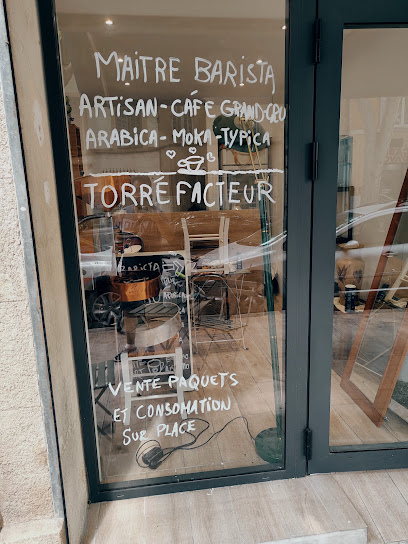 MAITRE BARISTA
ARTISAN-CAFÉ GRAND CRU
ARABICA-MOKA-TYPICA
TORRÉFACTEUR
VENTE PAQUETS
ET CONSOMATION
SUR PLACE